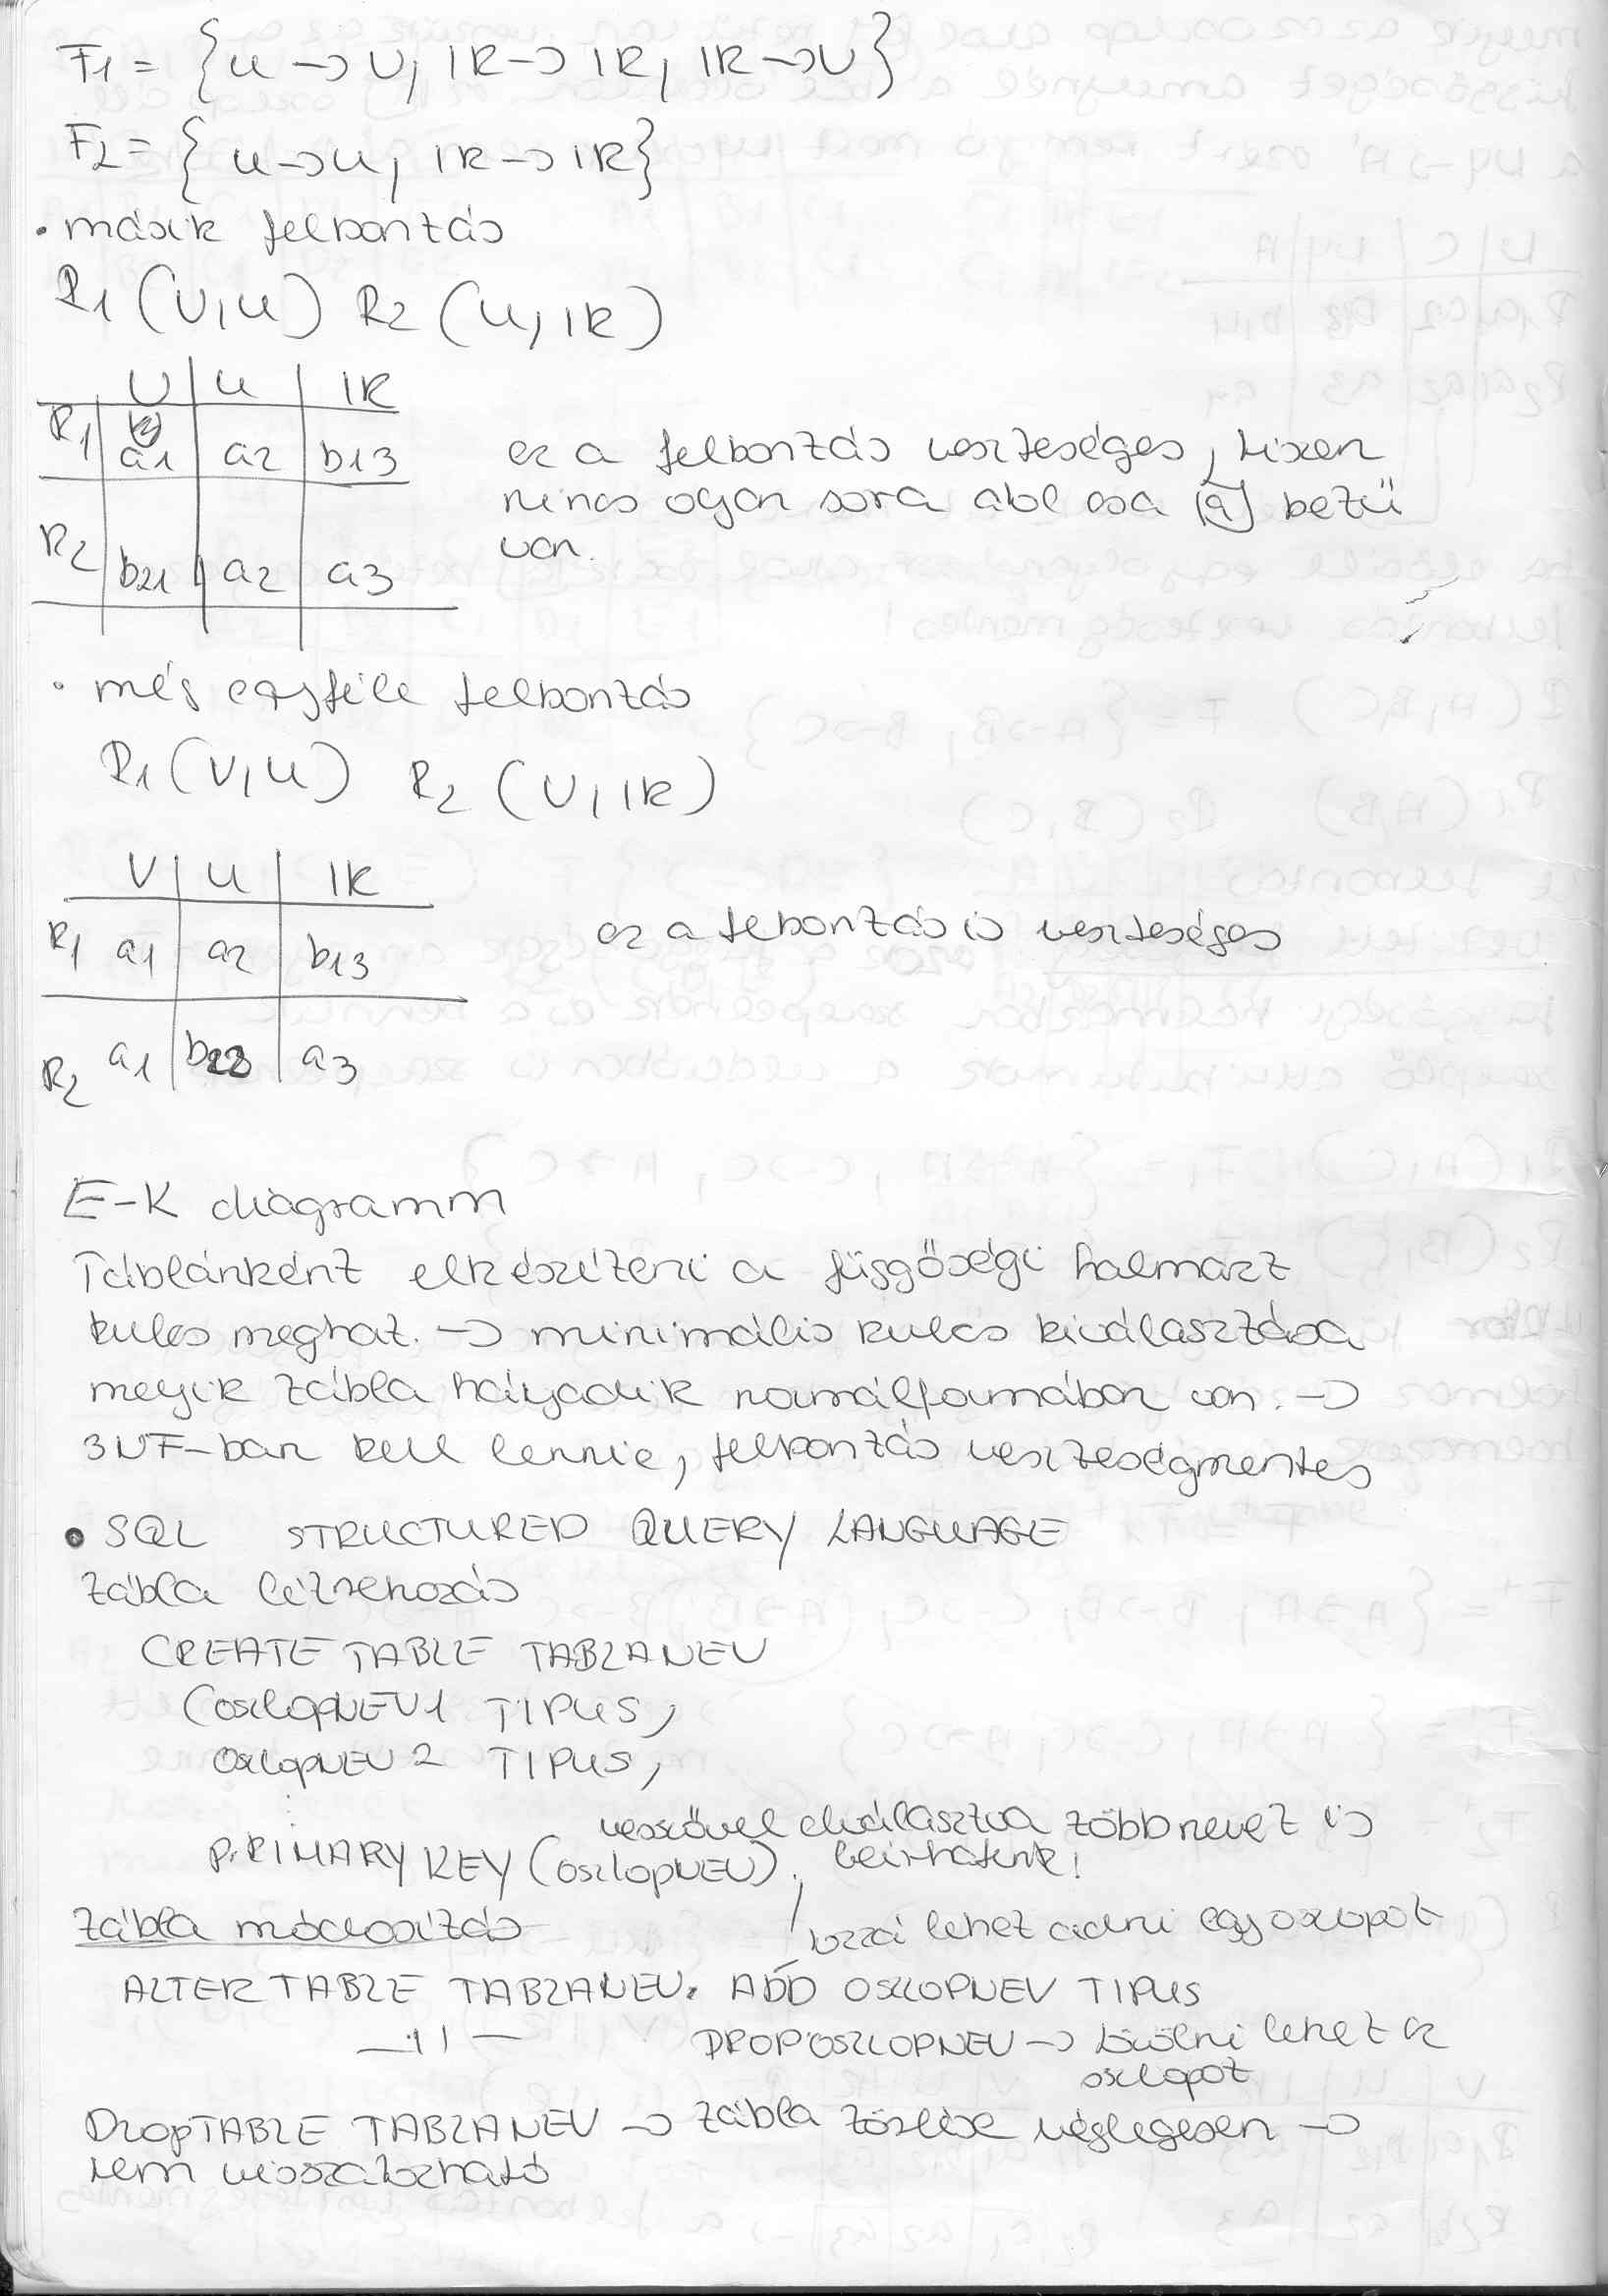 F1 = {U → V, IR → IR, IR → V}
F2 = {U → U, IR → IR}
• másik felbontás
R1 (V, U) R2 (U, IR)
V U IR
R1 a1 a2 b13
R2 b21 a2 a3
ez a felbontás veszteséges, hiszen
nincs olyan sora ahol csa (a) betű
van.
• még egyféle felbontás
R1 (V, U) R2 (V, IR)
V U IR
R1 a1 a2 b13
R2 a1 b22 a3
ez a febontás is veszteséges
E-K diagramm
Táblánként elkészíteni a függőségi halmazt
kulcs meghat. → minimális kulcs kiválasztása
melyik tábla hányadik normálformában van. →
3NF-ban kell lennie, felbontás veszteségmentes
• SQL STRUCTURED QUERY LANGUAGE
tábla létrehozás
CREATE TABLE TABLANEV
(oszlopNEV1 TIPUS,
oszlopNEV2 TIPUS,
⋮
vesszővel elválasztva több nevet is
PRIMARY KEY (oszlopNEV). beírhatunk!
tábla módosítás
hozzá lehet adni egy oszlopot
ALTER TABLE TABLANEV. ADD OSZLOPNEV TIPUS
—||— DROP OSZLOPNEV → törölni lehet az
oszlopot
DropTABLE TABLANEV → tábla törlése véglegesen →
nem visszahozható